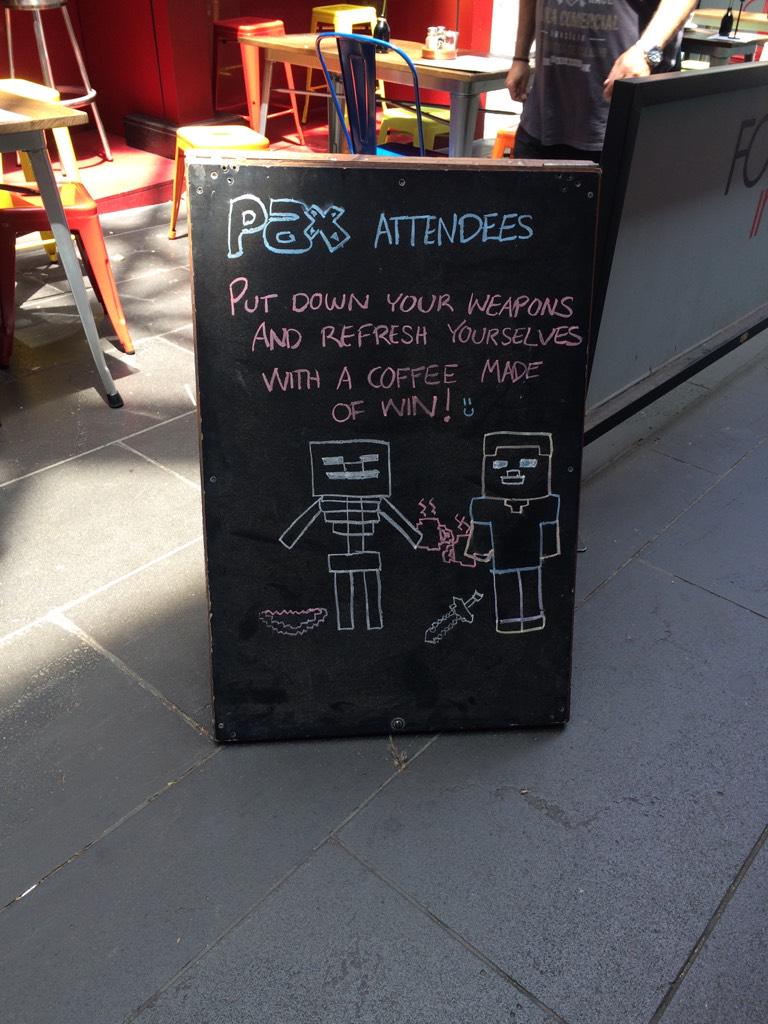 pax ATTENDEES
PUT DOWN YOUR WEAPONS
AND REFRESH YOURSELVES
WITH A COFFEE MADE
OF WIN! :)
LA COMERCIAL
FO